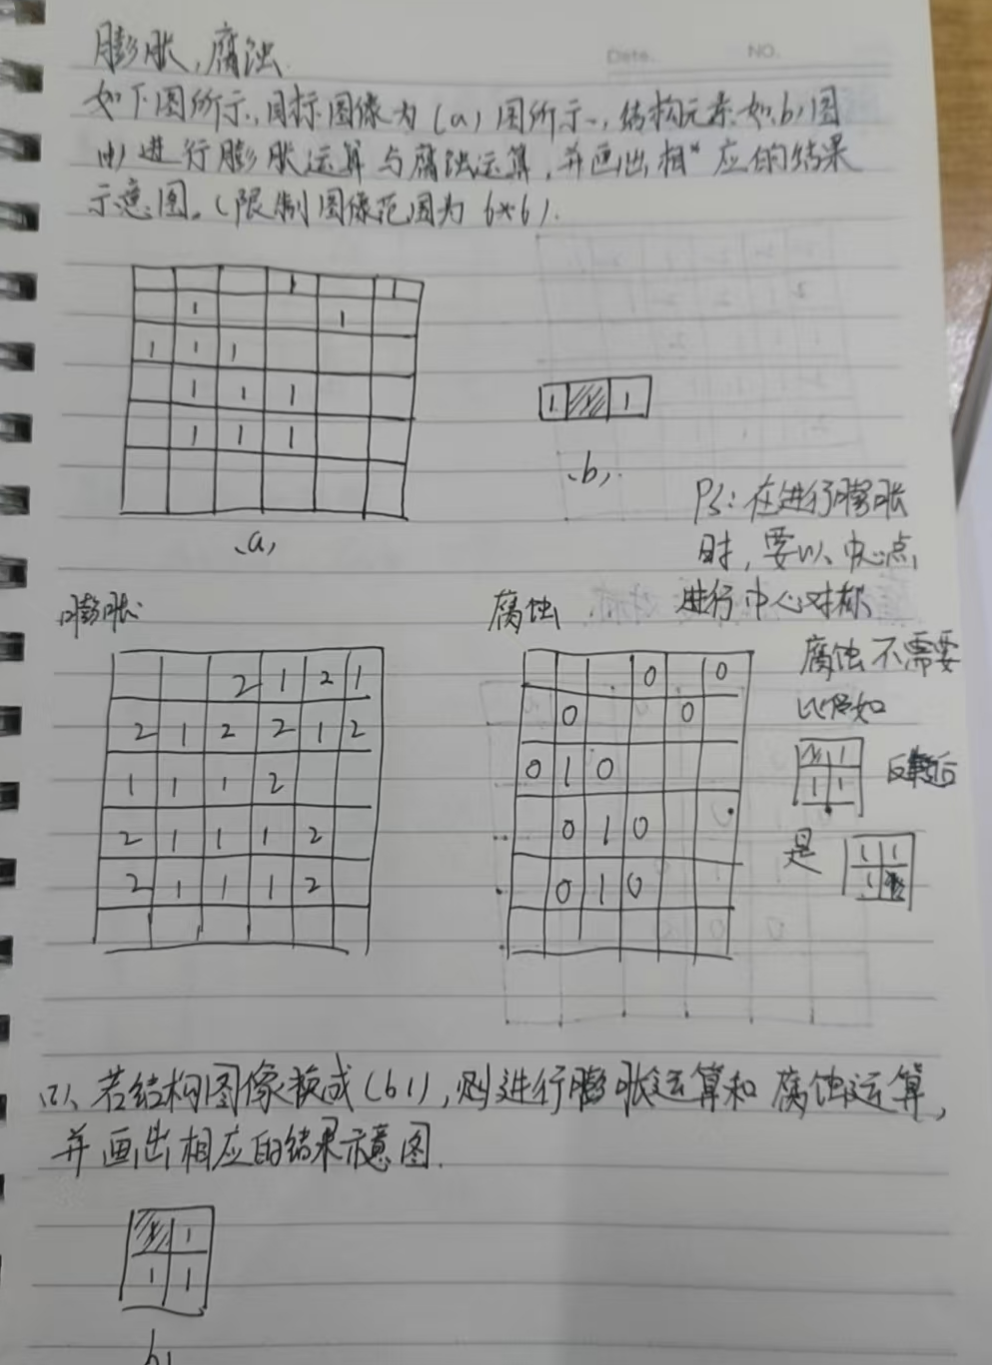 膨胀,腐蚀.
Date. NO.
如下图所示,目标图像为(a)图所示,结构元素如(b)图
(1)进行膨胀运算与腐蚀运算,并画出相应的结果
示意图。(限制图像范围为6*6).
1 1
1 1
1 1 1
1 1 1
1 1 1
(a)
1 1 1
(b)
PS:在进行膨胀
时,要以中心点,
进行中心对称
膨胀
2 1 2 1
2 1 2 2 1 2
1 1 1 2
2 1 1 1 2
2 1 1 1 2
腐蚀
0 0
0 0
0 1 0
0 1 0
0 1 0
腐蚀不需要
比如
1 1
1 1
后
是
1 1
1
(2)、若结构图像换成(b1),则进行膨胀运算和腐蚀运算,
并画出相应的结果示意图.
1 1
1 1
b1